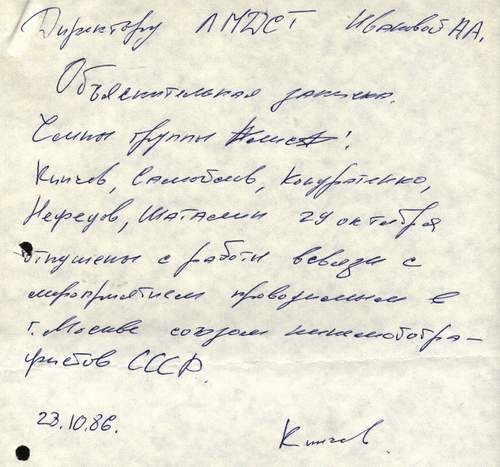 Директору ЛМДСТ Ивановой А.А.
Объяснительная записка.
Члены группы "Алиса"!
Кинчев, Самойлов, Кондратенко,
Нефедов, Шаталин 29 октября
отпущены с работы всвязи с
мероприятием проводимым в
г. Москве союзом кинематогра-
фистов СССР.
28.10.86.
Кинчев.